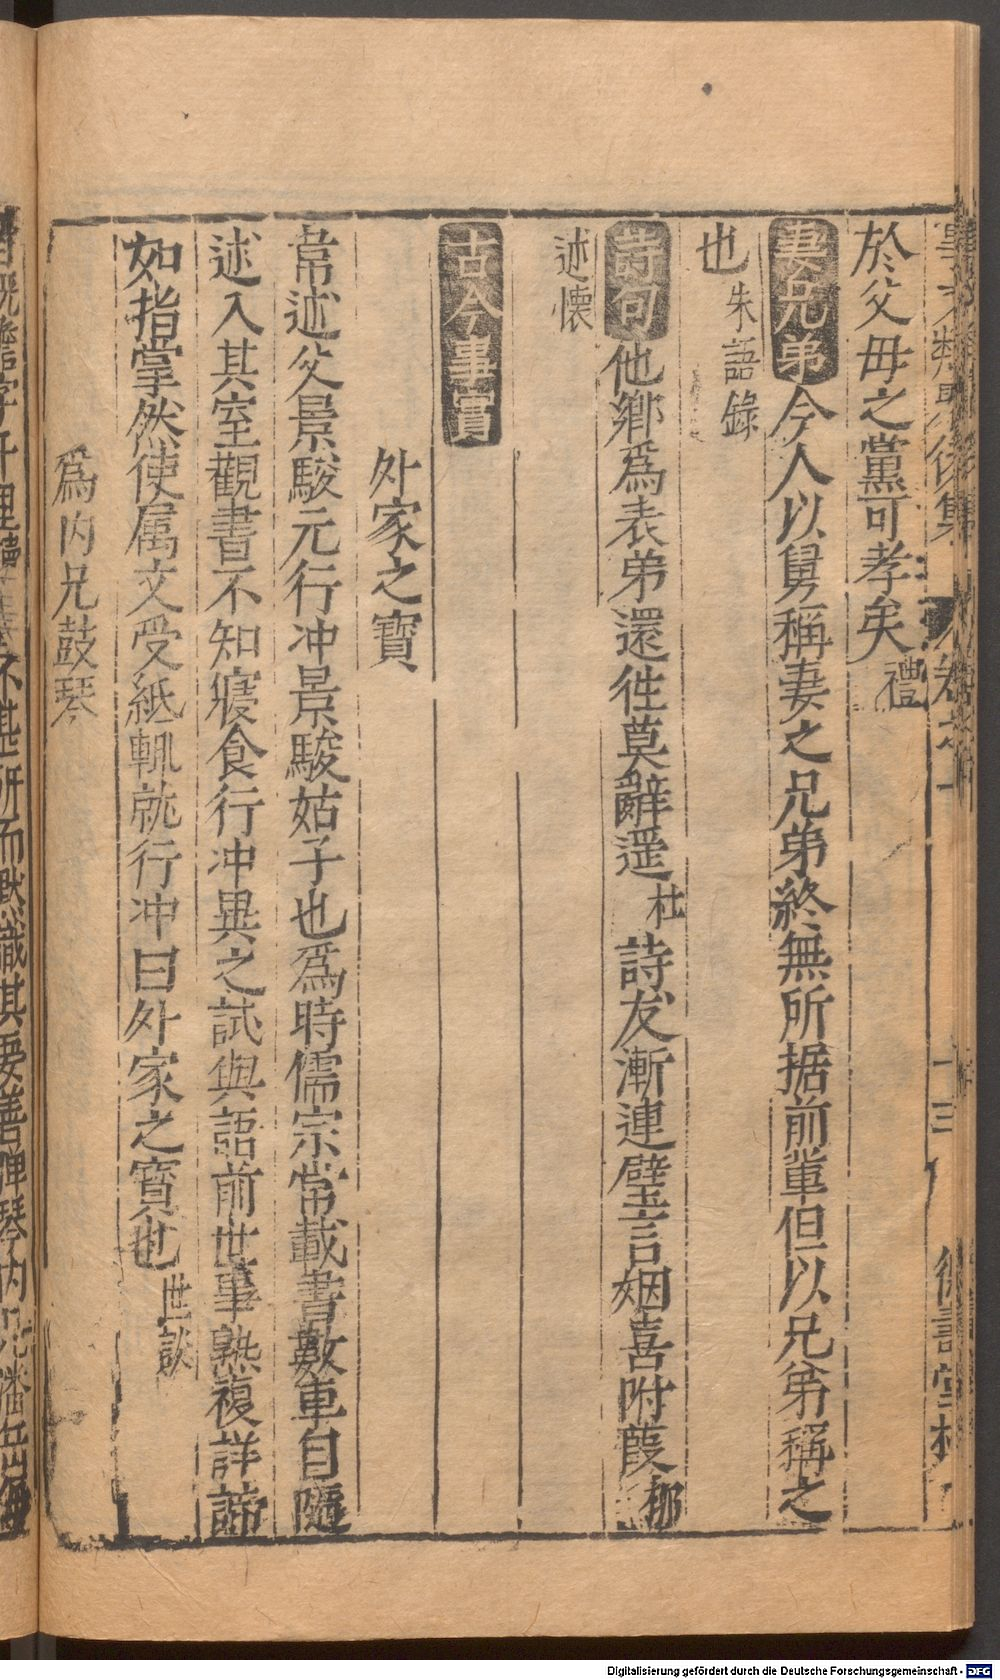 於父母之黨可孝矣禮
妻兄弟今人以舅稱妻之兄弟終無所据前輩但以兄弟稱之
也朱語錄
詩句他鄉爲表弟還徃莫辭遥杜詩友漸連璧言姻喜附葭柳
述懷
古今事實
外家之寳
韋述父景駿元行冲景駿姑子也爲時儒宗常載書數車自隨
述入其室觀書不知寢食行冲異之試與語前世事熟複詳諦
如指掌然使属文受紙輙就行冲曰外家之寳也世談
爲内兄鼓琴
Digitalisierung gefördert durch die Deutsche Forschungsgemeinschaft - DFG